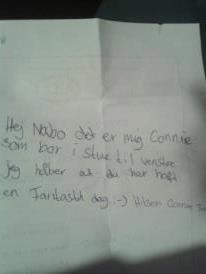 Hej Nabo det er mig Connie
som bor i stue til venstre
jeg håber at du har haft
en Fantastisk dag :-) Hilsen Connie